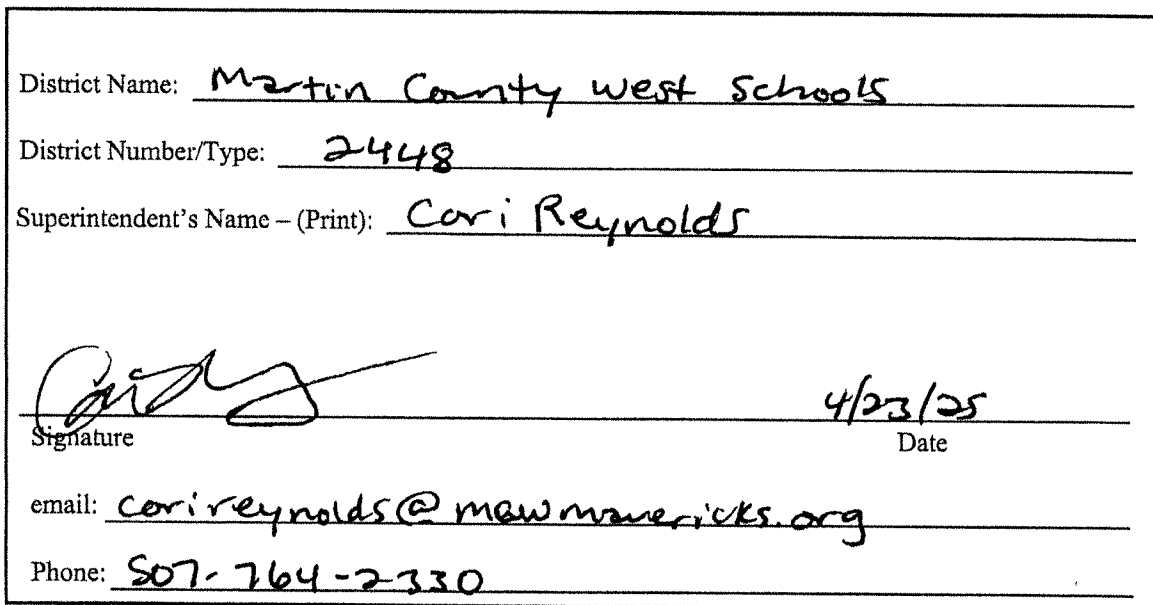 District Name: Martin County West Schools
District Number/Type: 2448
Superintendent's Name – (Print): Cori Reynolds
4/23/25
Signature Date
email: corireynolds@mcwmavericks.org
Phone: 507-764-2330